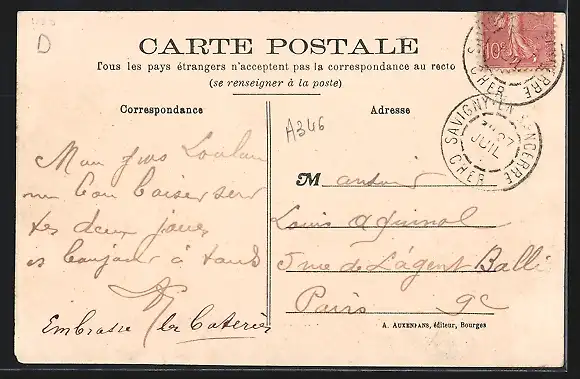 D
CARTE POSTALE
Tous les pays étrangers n'acceptent pas la correspondance au recto
(se renseigner à la poste)
10c
SAVIGNY-EN-SANCERRE
CHER
Correspondance
Adresse
A346
SAVIGNY-EN-SANCERRE
07
JUIL
CHER
Mon gros Loulou
un bon baiser sur
tes deux joues
et bonjour à tous
Embrasse
M
Louis
5 rue de L'agent Bailli
Paris 9e
A. AUXENFANS, éditeur, Bourges